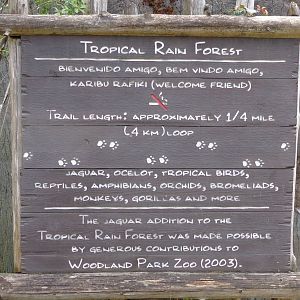 Tropical Rain Forest
Bienvenido amigo, bem vindo amigo,
karibu rafiki (welcome friend)
Trail length: approximately 1/4 mile
(.4 km) loop
Jaguar, ocelot, tropical birds,
reptiles, amphibians, orchids, bromeliads,
monkeys, gorillas and more
The jaguar addition to the
Tropical Rain Forest was made possible
by generous contributions to
Woodland Park Zoo (2003).